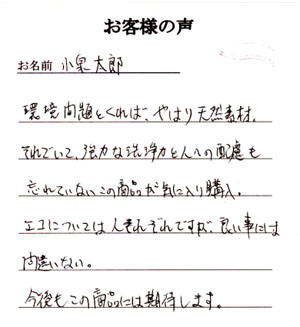 お客様の声
お名前 小泉太郎
環境問題とくれば、やはり天然素材。
それでいて、強力な洗浄力と人への配慮も
忘れていないこの商品が気に入り購入。
エコについては人それぞれですが、良い事には
間違いない。
今後もこの商品には期待します。